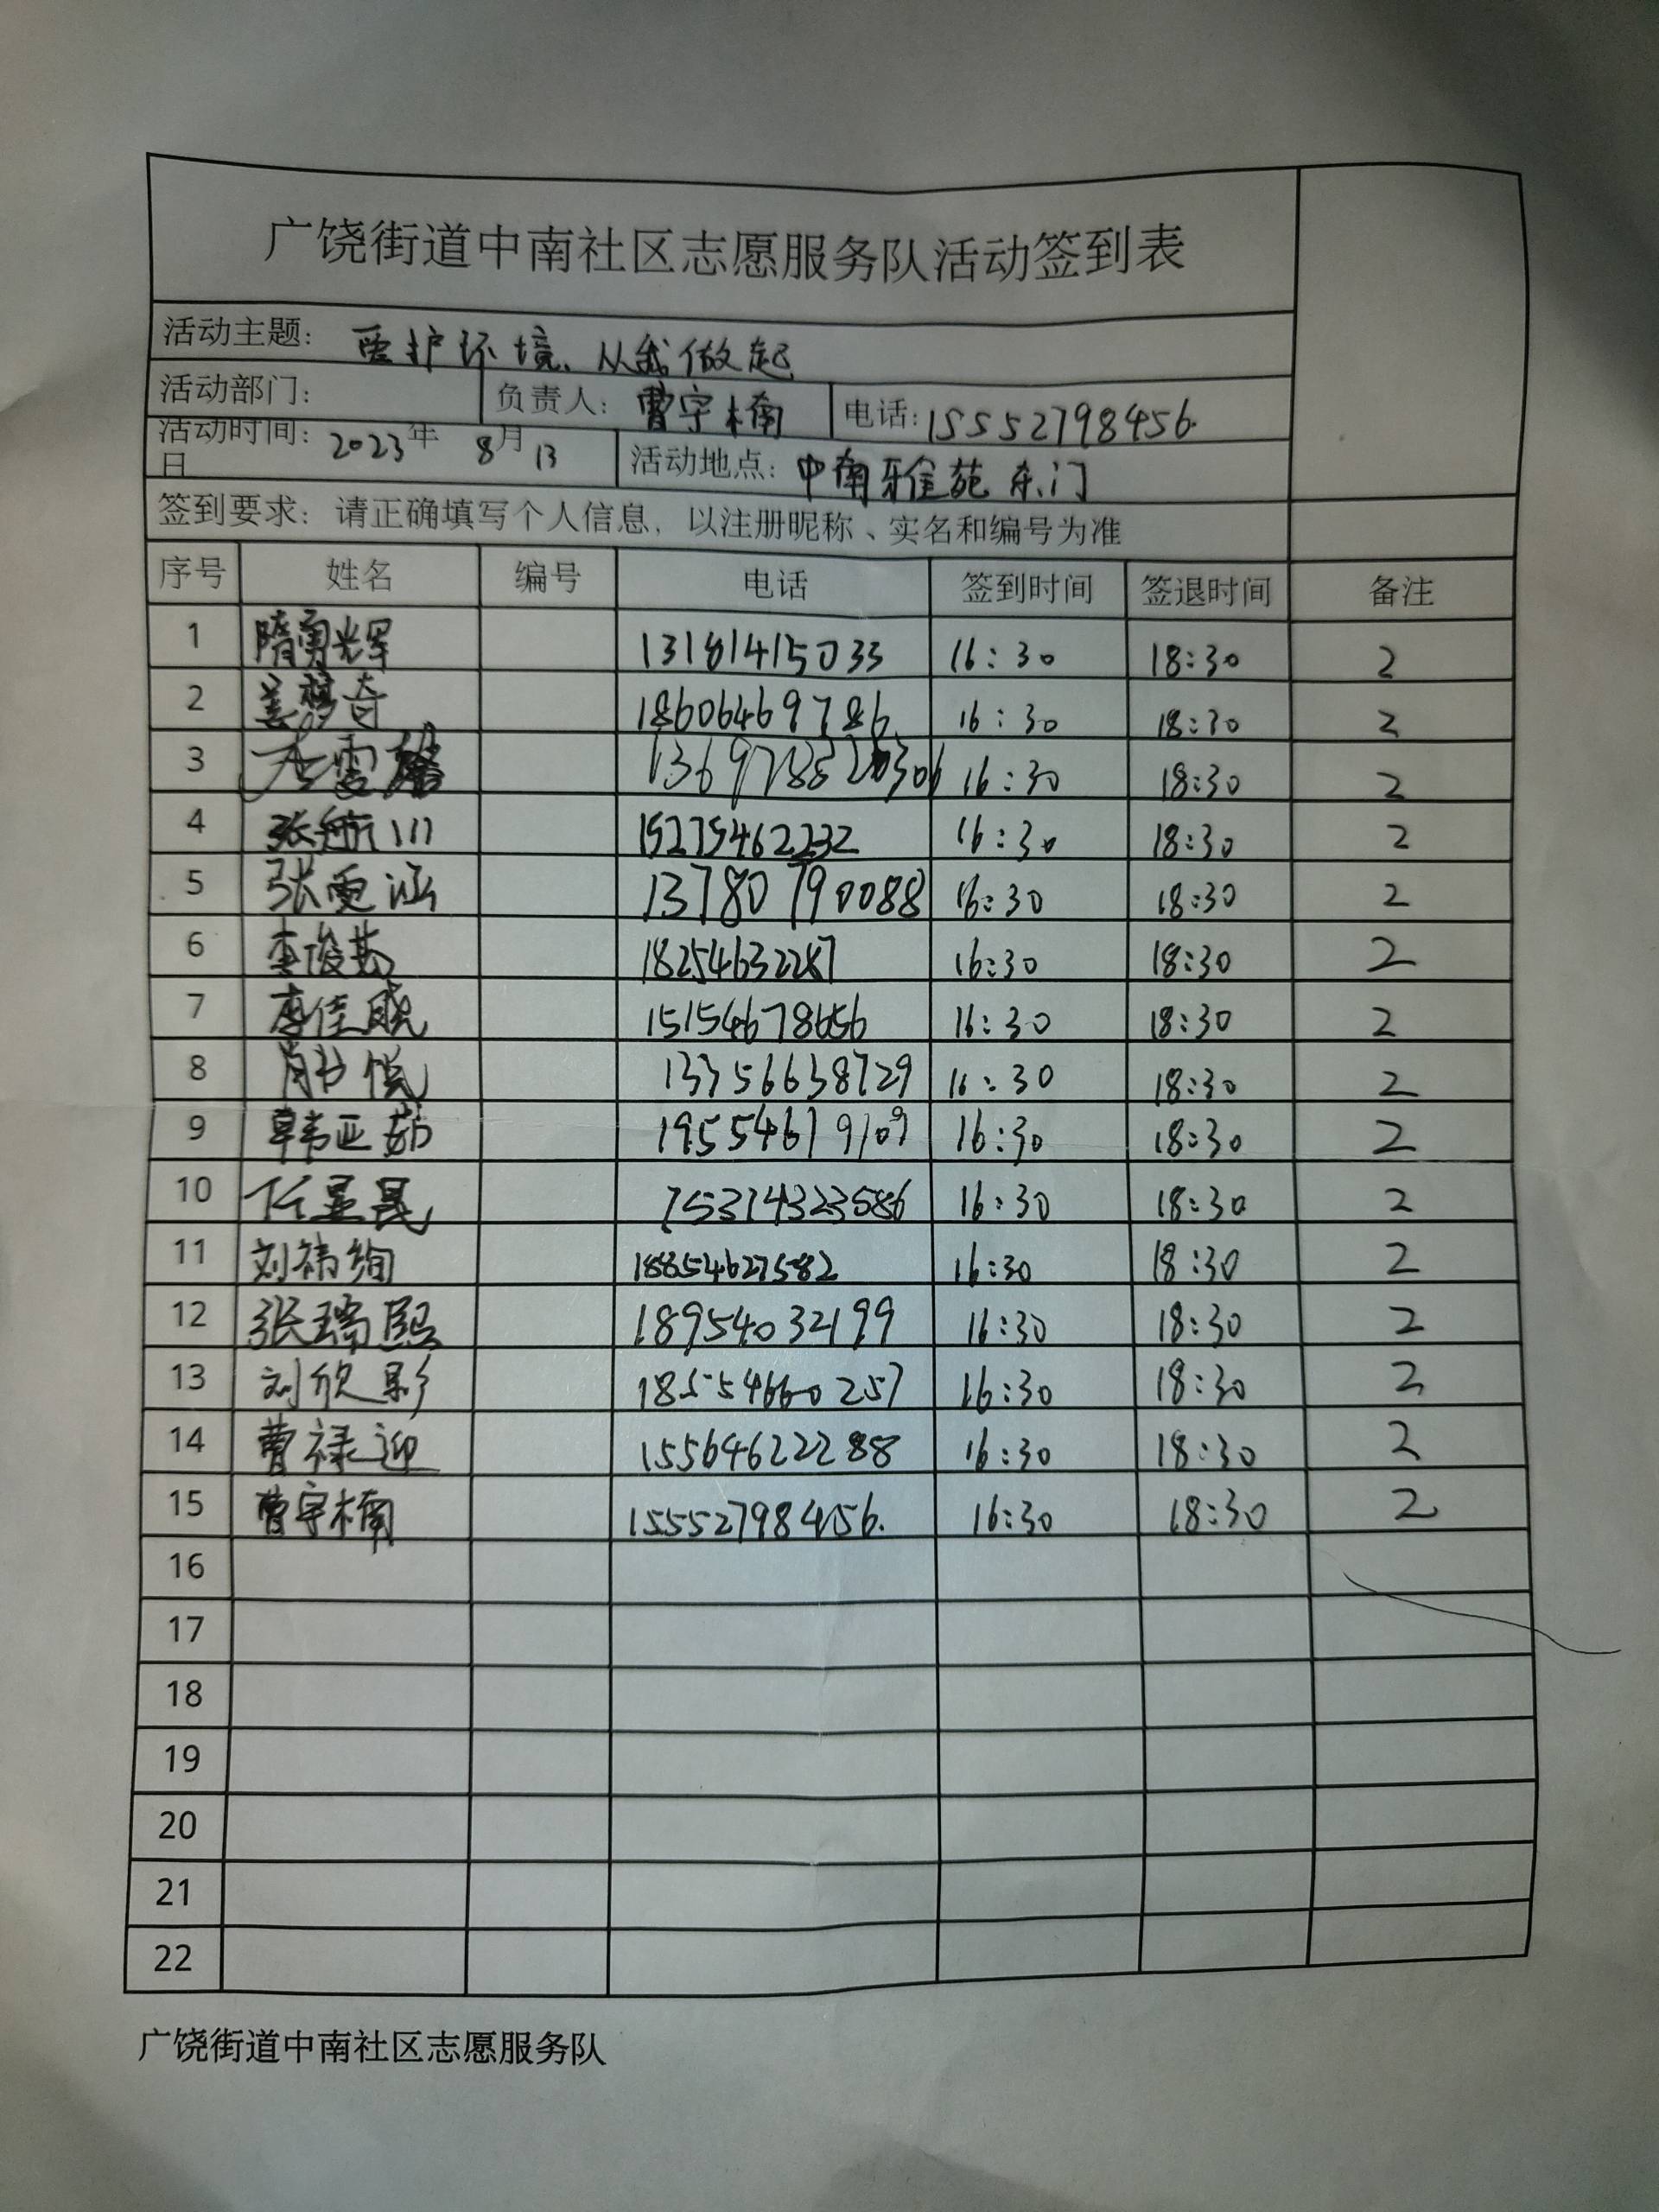 广饶街道中南社区志愿服务队活动签到表
活动主题: 爱护环境、从我做起
活动部门: 负责人: 曹宇楠 电话: 15552798456
活动时间: 2023年 8月 13日 活动地点: 中南雅苑东门
签到要求: 请正确填写个人信息, 以注册昵称、实名和编号为准
序号 姓名 编号 电话 签到时间 签退时间 备注
1 隋勇光军 13181415033 16:30 18:30 2
2 姜穆奇 18606469786 16:30 18:30 2
3 16:30 18:30 2
4 张航川 15275462232 16:30 18:30 2
5 张雯涵 13780790088 16:30 18:30 2
6 李俊 18254632287 16:30 18:30 2
7 佳 15154678656 16:30 18:30 2
8 肖 悦 13356638729 16:30 18:30 2
9 韩亚茹 19554679109 16:30 18:30 2
10 任昱晟 16:30 18:30 2
11 刘祎绚 18854627582 16:30 18:30 2
12 张瑞熙 18954032199 16:30 18:30 2
13 刘欣影 18554660257 16:30 18:30 2
14 曹禄迎 15564622288 16:30 18:30 2
15 曹宇楠 15552798456. 16:30 18:30 2
16
17
18
19
20
21
22
广饶街道中南社区志愿服务队